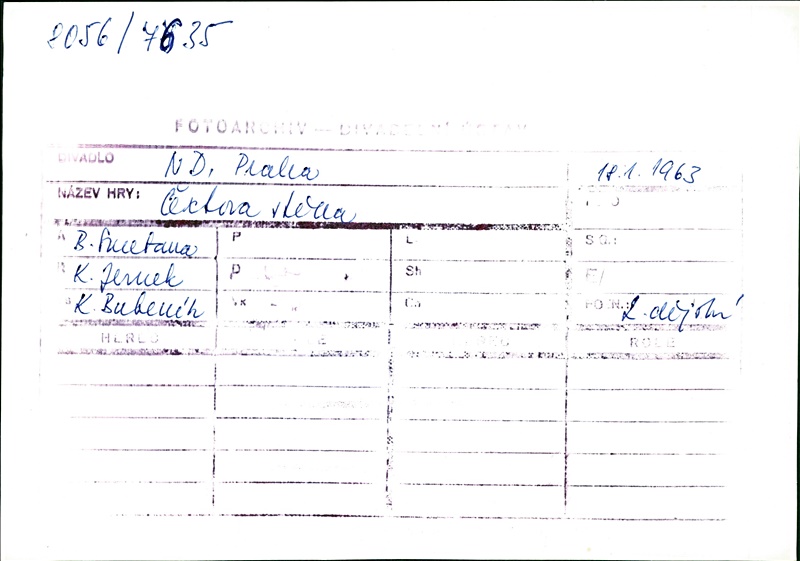 8056/7635
FOTOARCHIV — DIVADELNÍ ÚSTAV
DIVADLO ND, Praha 18.1.1963
NÁZEV HRY: Čertova stěna
A B. Smetana P L SG.:
R K. Jernek P Sh
K. Bubeník Vk Ch POZN.: 2. dějství
HEREC ROLE HEREC ROLE